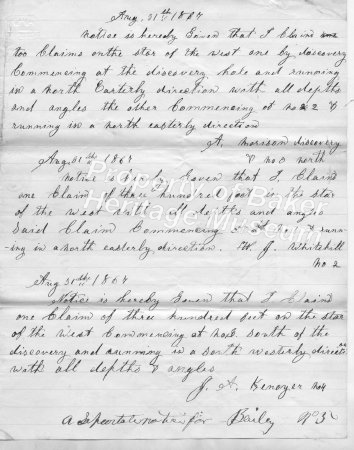 Aug. 31th 1867
notice is hereby Given that I Claim
too Claims on the star of the west one by discovery
Commencing at the discovery hole and running
in a north Easterly direction with all depths
and angles the other Commencing at no 2 &
running in a north easterly direction
A. Morison discovery
& no north
Aug. 31th 1867
notice is hereby Given that I Claim
one Claim of three hundred feet on the star
of the west with all depths and angles
Said Claim Commencing running
in a north easterly direction. W J. Whitehill
No 2
Aug 31th 1867
Notice is hereby Given that I Claim
one Claim of three hundred feet on the star
of the West Commencing at no South of the
discovery and running in a South Westerly direction
with all depths & angles
J. A. Kenoyer No 4
a Seperate notis for Bailey No 3
Property of Baker
Heritage Museum